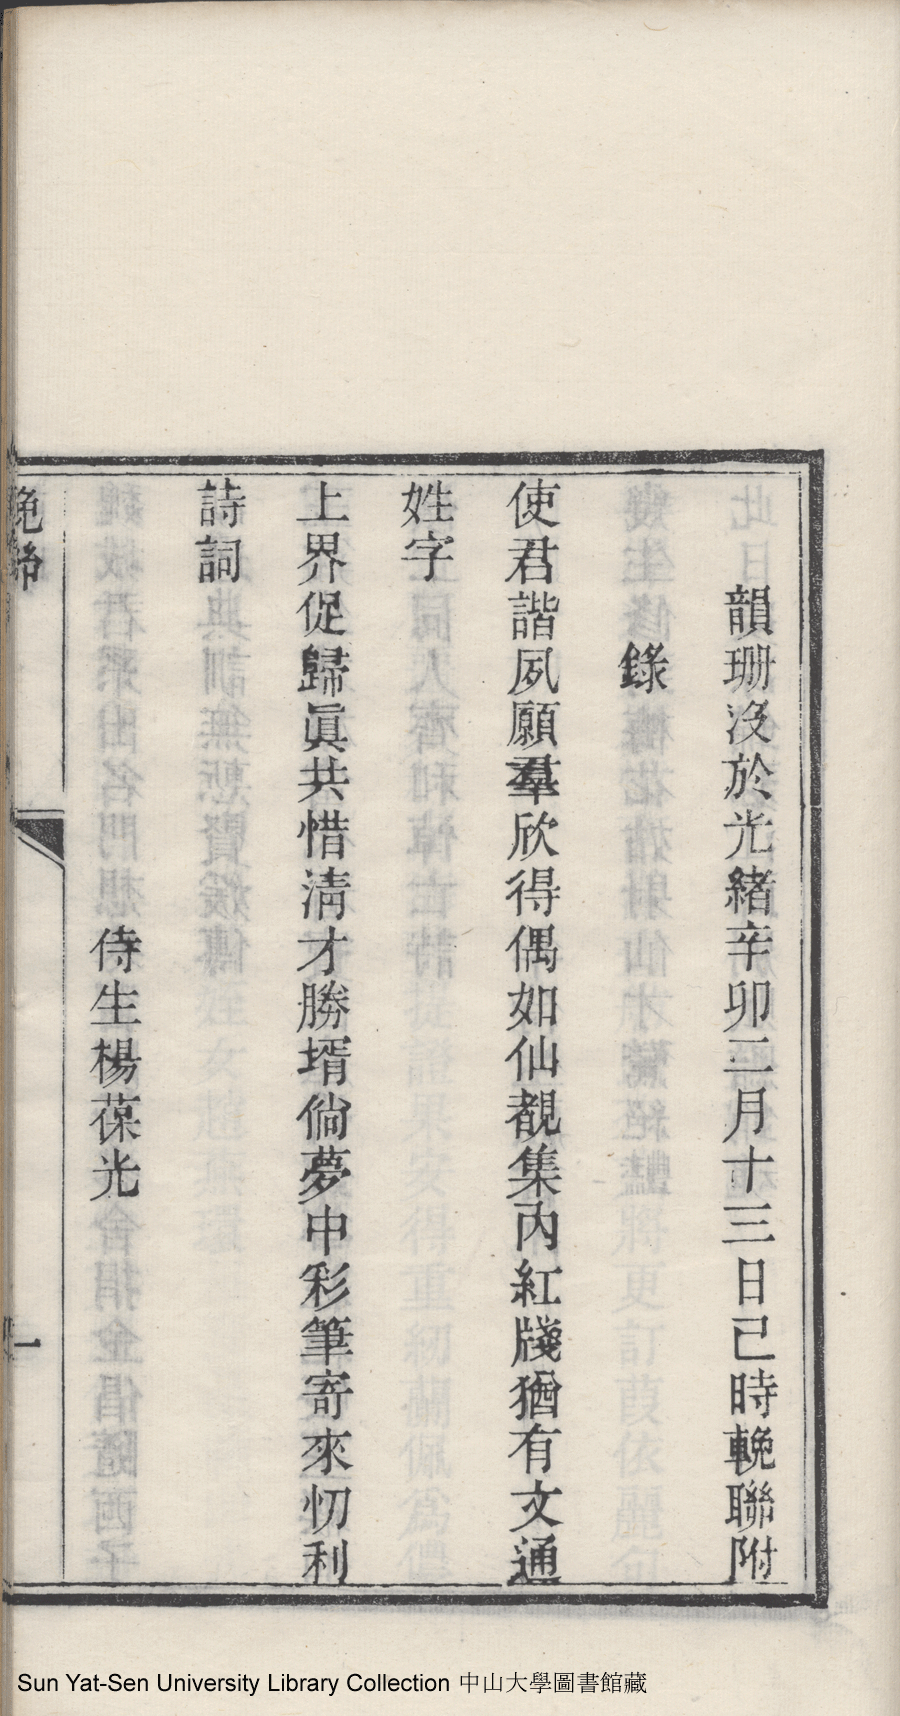 韻珊沒於光緒辛卯二月十三日己時輓聯附
錄
使君諧夙願羣欣得偶如仙覩集內紅牋猶有文通
姓字
上界促歸眞共惜清才勝壻倘夢中彩筆寄來忉利
詩詞
侍生楊葆光
輓聯
一
Sun Yat-Sen University Library Collection 中山大學圖書館藏